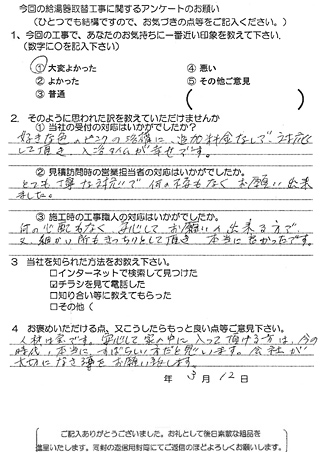 今回の給湯器取替工事に関するアンケートのお願い
(ひとつでも結構ですので、お気づきの点等をご記入ください。)
1、今回の工事で、あなたのお気持ちに一番近い印象を教えて下さい。
(数字に○を記入下さい)
① 大変よかった ④ 悪い
② よかった ⑤ その他ご意見
③ 普通 ( )
2、そのように思われた訳を教えていただけませんか
① 当社の受付の対応はいかがでしたか?
好きな色のピンクの浴槽に、追加料金なしで対応
して頂き、入浴タイムが幸せです。
② 見積訪問時の営業担当者の対応はいかがでしたか。
とても丁寧な対応で何の不安もなくお願い出来
ました。
③ 施工時の工事職人の対応はいかがでしたか。
何の心配もなく、安心してお願いの出来る方で、
又、細かい所もきっちりとして頂き、本当に良かったです。
3 当社を知られた方法をお教え下さい。
□インターネットで検索して見つけた
☑チラシを見て電話した
□知り合い等に教えてもらった
□その他(
4 お褒めいただける点、又こうしたらもっと良い点等ご意見下さい。
人材は宝です。安心して家の中に入って頂ける方は、今の
時代、本当に、すばらしい方だと思います。会社が
大切になさる事をお願い致します。
年 3月 12日
ご記入ありがとうございました。お礼として後日素敵な粗品を
進呈いたします。同封の返信用封筒にてご返信のほどよろしくお願いします。